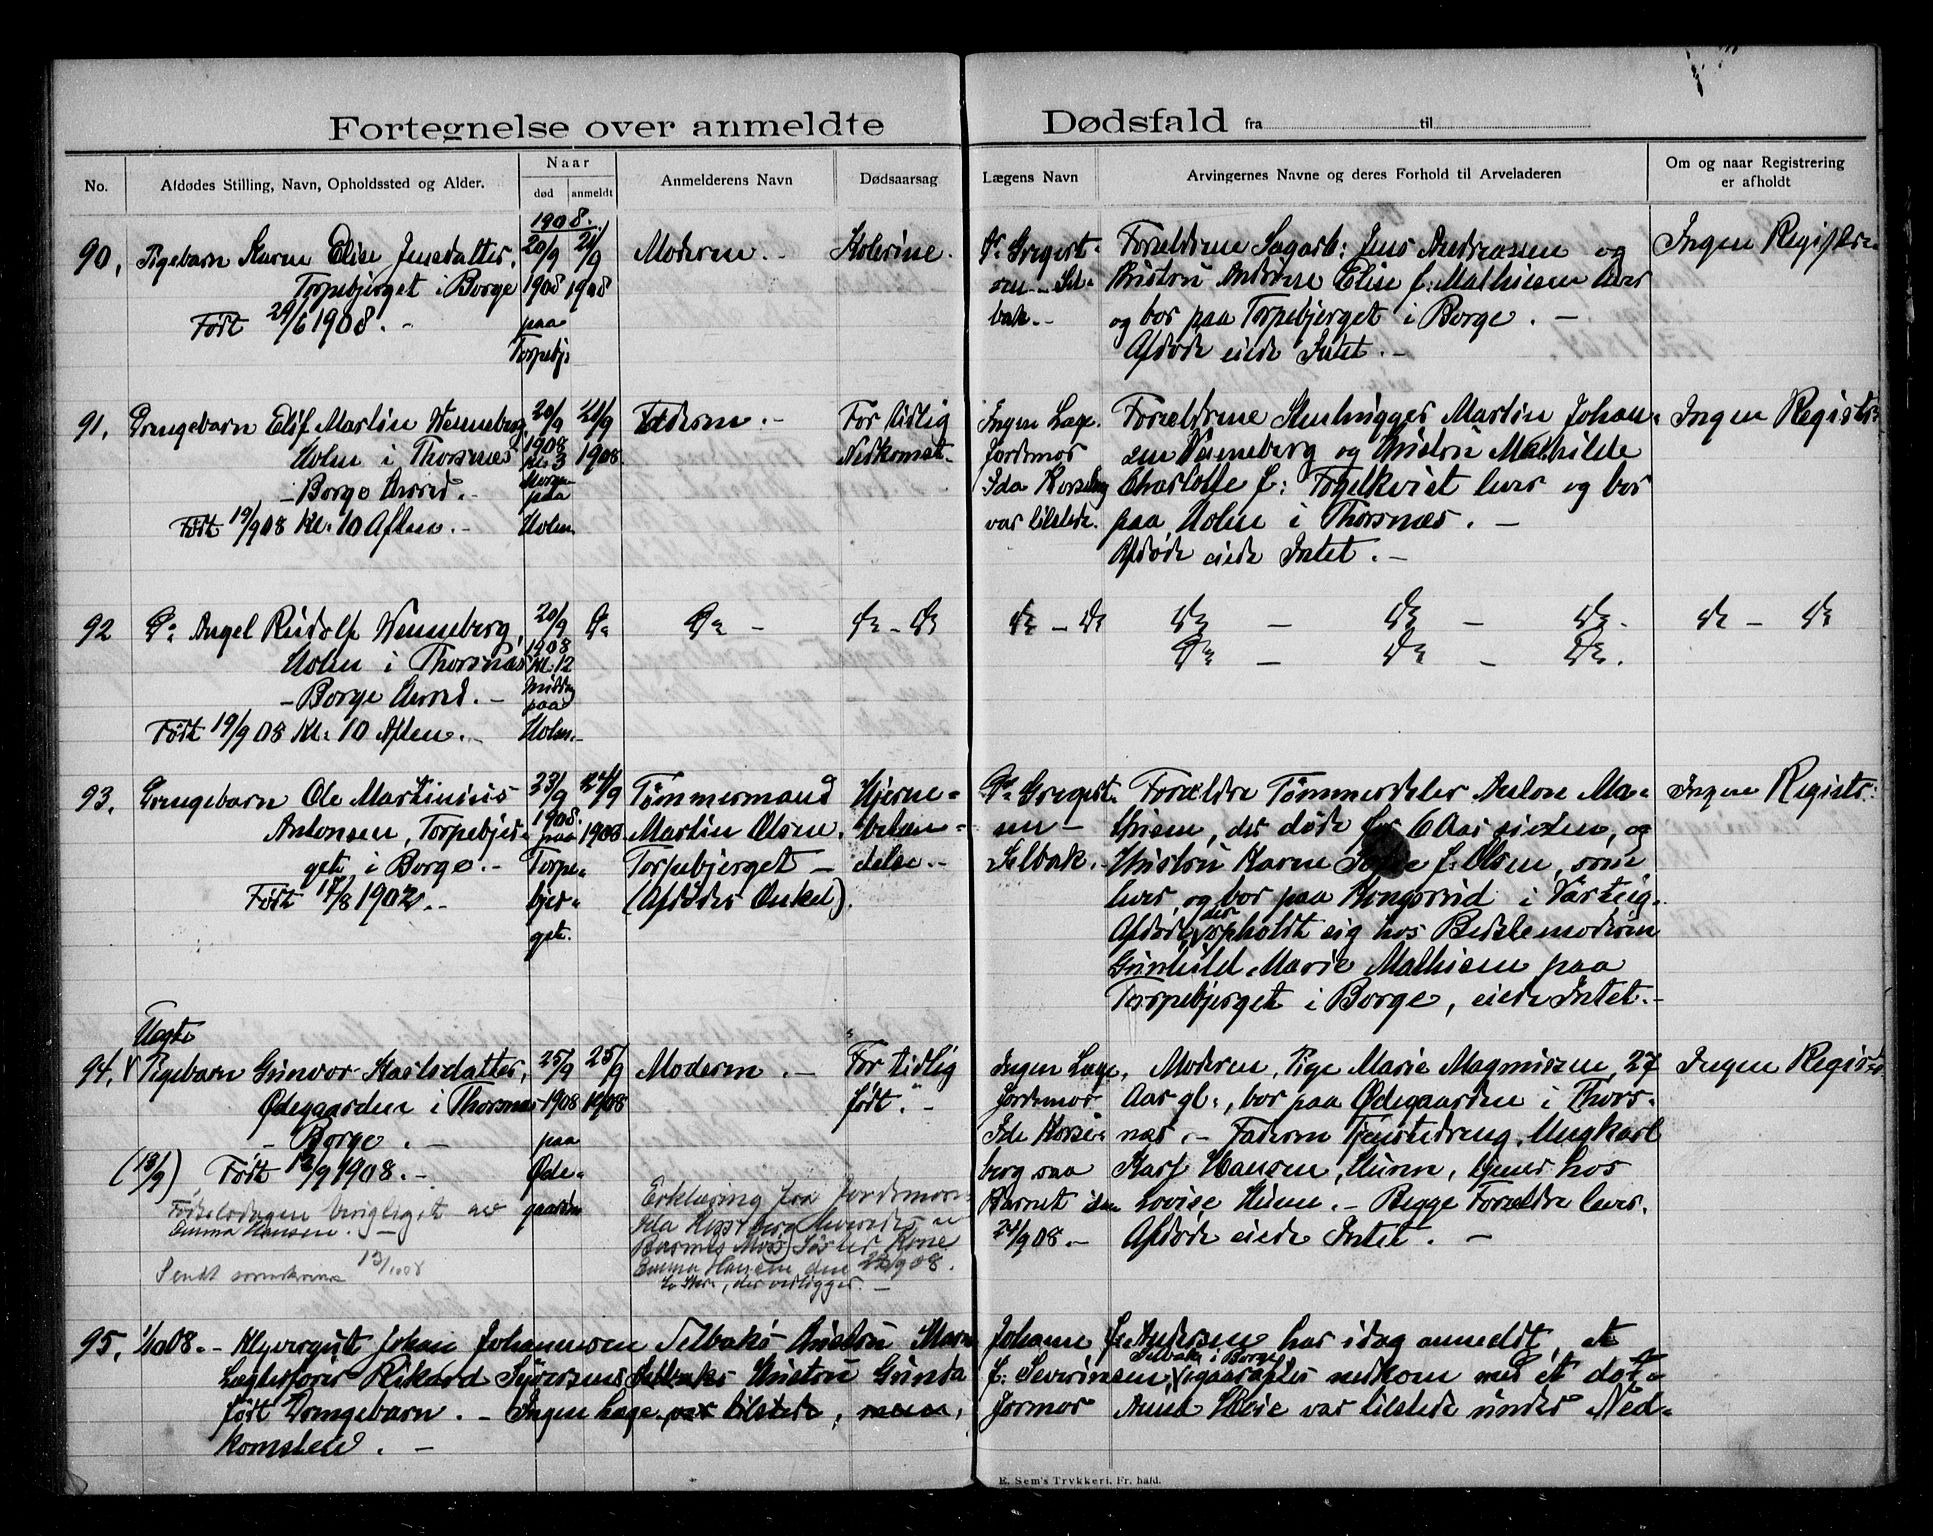 Fortegnelse over anmeldte Dødsfald fra til
No.
Afdødes Stilling, Navn, Opholdssted og Alder.
Naar
død
anmeldt
Anmelderens Navn
Dødsaarsag
Lægens Navn
Arvingernes Navne og deres Forhold til Arveladeren
Om og naar Registrering
er afholdt
90.
Pigebarn Karen Elise Jensdatter,
Torpebjerget i Borge
Født 29/6 1908. -
1908.
20/9
1908
paa
Torpebj.
21/9
1908
Moderen. -
Kolerine.
Dr. Gregert-
sen - Sel-
bak. -
Forældrene Sagarb: Jens Andreassen og
Hustru Andrine Elise f: Mathisen lever
og bor paa Torpebjerget i Borge. -
Afdøde eiede Intet. -
Ingen Registre-
91.
Drengebarn Elif Martin Wenneberg
Holm i Thorsnæs
- Borge Herred. -
Født 19/9 08 Kl. 10 Aften. -
20/9
1908
Kl. 3
Morgen
paa
Holm
21/9
1908.
Faderen. -
For tidlig
Nedkomst.
Ingen Læge.
Jordemor
Ida Korseberg
var tilstede.
Forældrene Stenhugger Martin Johan-
sen Venneberg og Hustru Mathilde
Charlotte f: Fogelkvist lever og bor
paa Holm i Thorsnæs. -
Afdøde eiede Intet. -
Ingen Registr:
92
Do Angel Rudolf Wenneberg,
Holm i Thorsnæs
- Borge Herred. -
Født 19/9 08 Kl. 10 Aften. -
20/9
1908
Kl. 12
Middag
paa
Holm. -
Do
Do -
Do - Do
Do - Do
Do - Do - Do -
Do - Do - Do.
Do - Do
93.
Drengebarn Ole Martinius
Antonsen, Torpebjer-
get i Borge. -
Født 17/8 1902. -
23/9
1908.
paa
Torpe-
bjer-
get.
24/9
1908
Tømmermand
Martin Olsen,
Torpebjerget -
(Afdødes Onkel).
Hjerne-
betæn-
delse. -
Dr. Gregert-
sen -
Selbak. -
Forældre Tømmerdeler Anton Ma-
thisen, der døde for 6 Aar siden, og
Hustru Karen f: Olsen, som
lever og bor paa Kongsrud i Varteig.
Afdøde, der opholdt sig hos Bedstemoderen
Gunhild Marie Mathisen paa
Torpebjerget i Borge, eiede Intet. -
Ingen Registr:
Uægte
94.
Pigebarn Gunvor Karlsdatter,
Ødegaarden i Thorsnæs
- Borge. -
(13/9) Født 12/9 1908. -
Fødselsdagen berigtiget av
Emma Hansen. -
Sendt 13/10 08
25/9
1908
paa
Øde-
gaarden
25/9
1908
Moderen. -
For tidlig
født. -
Erklæring fra Jordemor
Ida Korseberg
Barnets Mors Søster Kone
Emma Hansen den 08.
der vedligger. -
Ingen Læge,
Jordemor
Ida Korse-
berg saa
Barnet den
24/9 08. -
Moderen, Pige Marie Magnussen, 27
Aar gl., bor paa Ødegaarden i Thors-
næs. - Faderen Tjenestedreng, Ungkarl
Karl Hansen, Hunn, tjener hos
Lovise Hunn. - Begge Forældre lever.
Afdøde eiede Intet. -
Ingen Registr.
95.
1/10 08. - Klyvergut Johan Johannesen Selbaks Hustru Maren Johanne f: Andersen har idag anmeldt, at
Rikard Syversens Selbaks Hustru Gunda f: Severinsen, Selbak i Borge igaaraftes nedkom med et død-
født Drengebarn. - Ingen Læge var tilstede, men, Jormor Anna Høie var tilstede under Ned-
komsten. -
E. Sem's Trykkeri, Fr.hald.